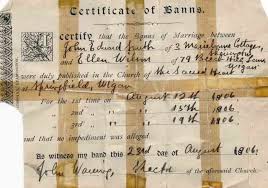 Certificate of Banns.
certify that the Banns of Marriage between
John Edward Smith of 3 Cottages,
and Ellen of 79 Beech Hill Lane
Wigan
were duly published in the Church of the Sacred Heart
at Springfield, Wigan
on August 12th 1906
" " 15th 1906
" " 19th 1906
and that no impediment was alleged
As witness my hand this 23rd day of August 1906.
John Rector of the aforesaid Church.